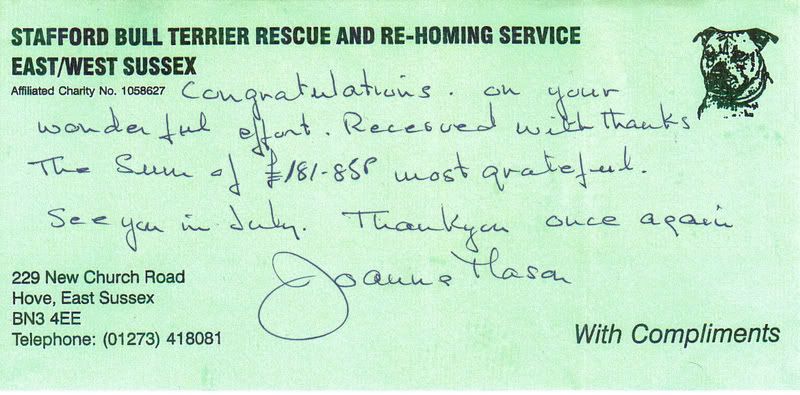 STAFFORD BULL TERRIER RESCUE AND RE-HOMING SERVICE
EAST/WEST SUSSEX
Affiliated Charity No. 1058627
Congratulations. on your
wonderful effort. Received with thanks
The Sum of £181-85P most grateful.
See you in July. Thankyou once again
Joanne Mason
229 New Church Road
Hove, East Sussex
BN3 4EE
Telephone: (01273) 418081
With Compliments